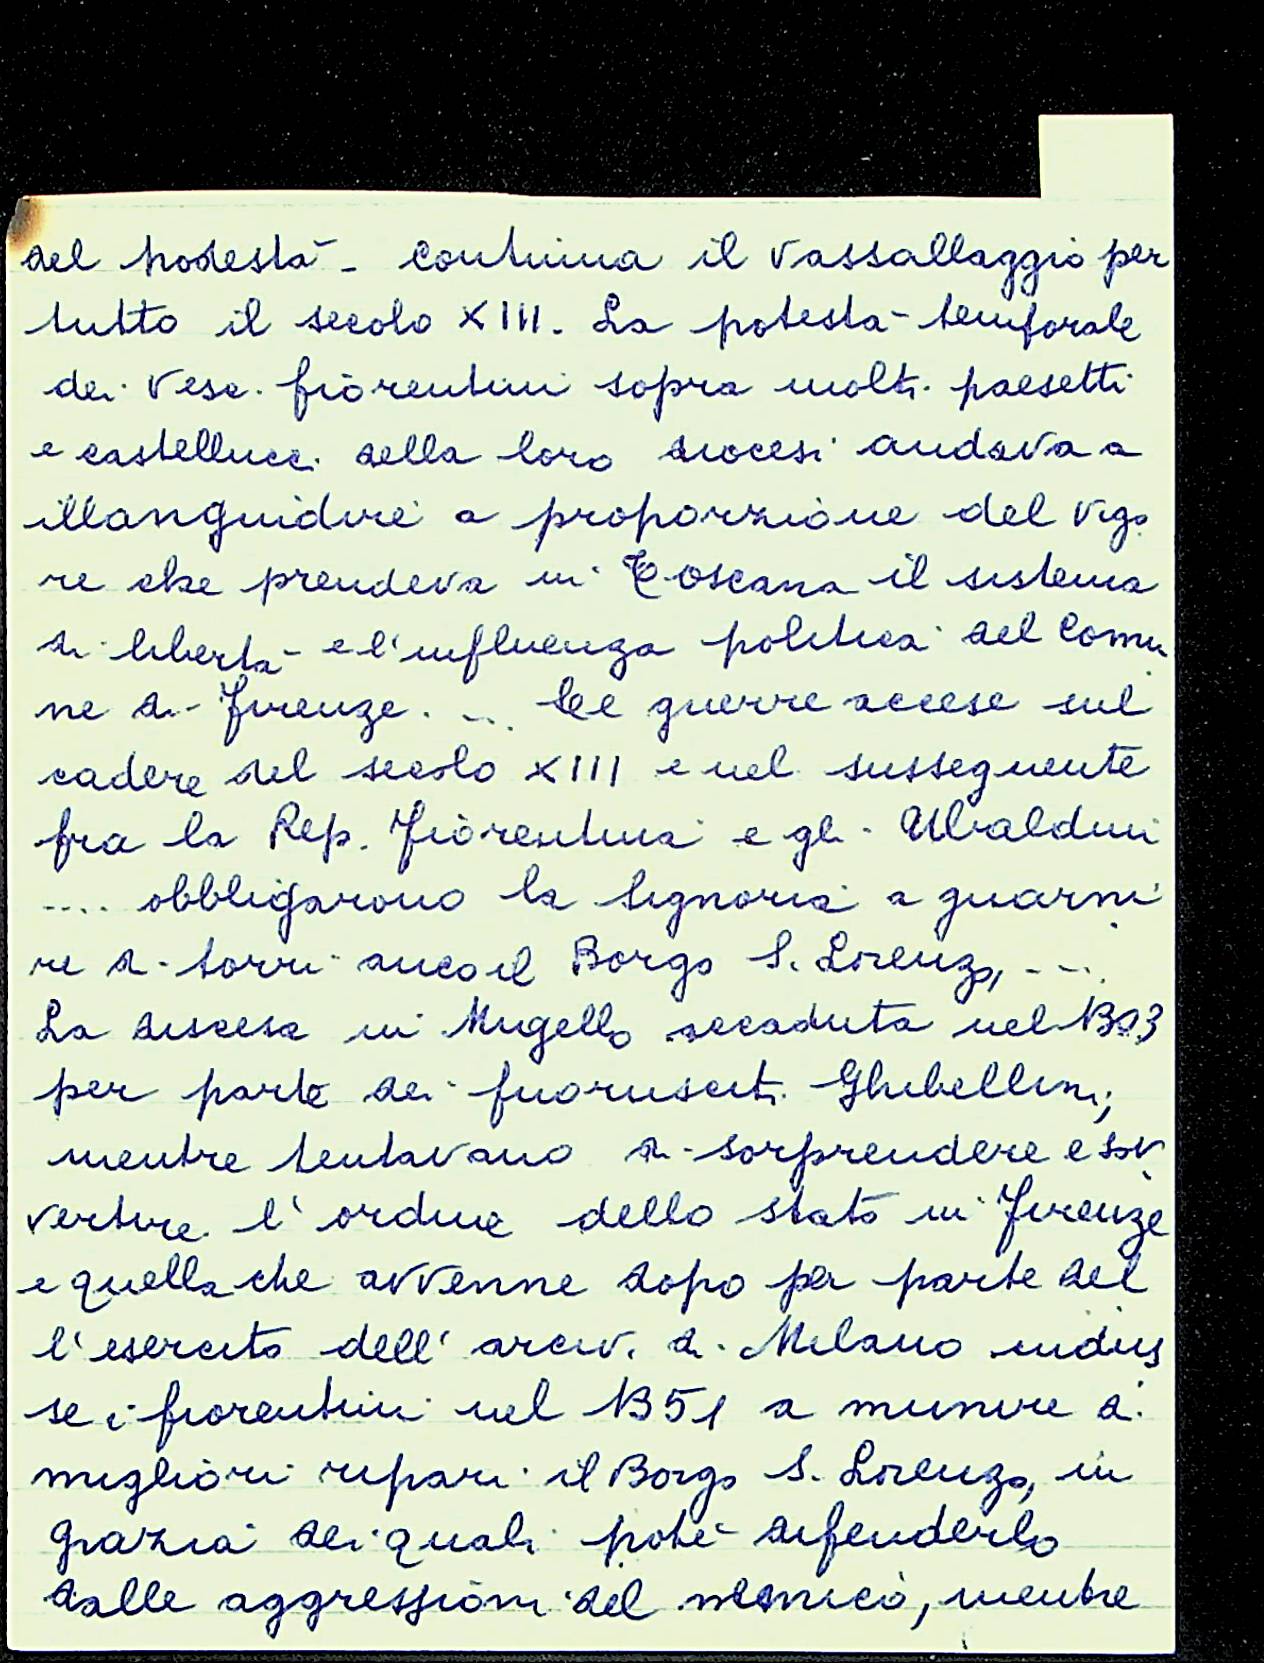 del podestà - continua il vassallaggio per
tutto il secolo XIII. La potestà temporale
dei Vesc. fiorentini sopra molti paesetti
e castellucci della loro diocesi andava a
illanguidire a proporzione del vigo
re che prendeva in Toscana il sistema
di libertà e l'influenza politica del Comu
ne di Firenze. ... Le guerre accese sul
cadere del secolo XIII e nel susseguente
fra la Rep. Fiorentina e gli Ubaldini
.... obbligarono la Signoria a guarni
re di torri anco il Borgo S. Lorenzo, ....
La discesa in Mugello accaduta nel 1303
per parte dei fuorusciti Ghibellini,
mentre tentavano di sorprendere e sov
vertire l'ordine dello stato in Firenze
e quella che avvenne dopo per parte del
l'esercito dell'arciv. di Milano indus
se i fiorentini nel 1351 a munire di
migliori ripari il Borgo S. Lorenzo, in
grazia dei quali poté difenderlo
dalle aggressioni del nemico, mentre